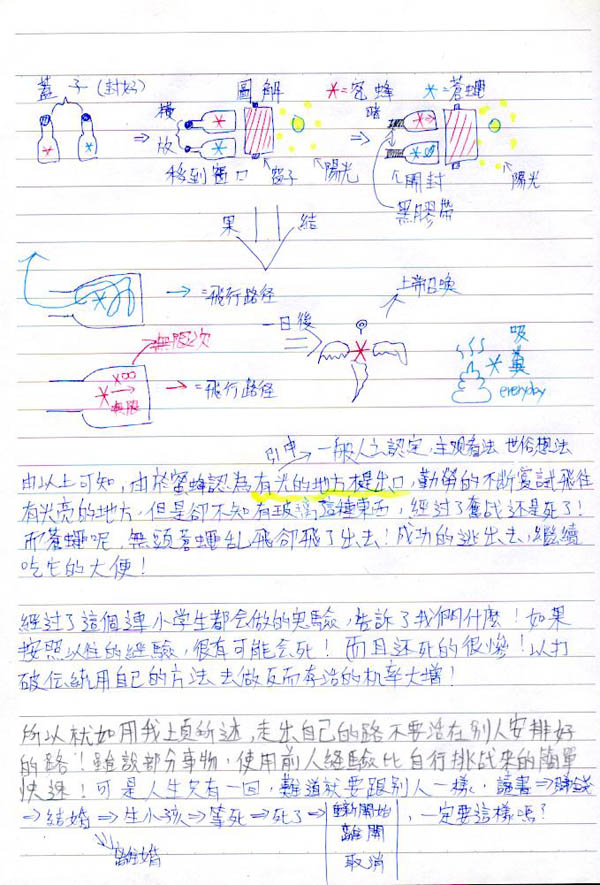 蓋子(封好)
圖解
*=蜜蜂
*=蒼蠅
橫
放
⇒
⇒
暗
移到窗口
窗子
陽光
開封
黑膠帶
陽光
果
結
→=飛行路徑
上帝召喚
一日後
無限次
→=飛行路徑
無限
吸
糞
everyday
引申→一般人之認定,主观看法 世俗想法
由以上可知,由於蜜蜂認為有光的地方是出口,勤勞的不斷嘗試飛往
有光亮的地方,但是卻不知有玻璃這種東西,經过了奮战还是死了!
而蒼蠅呢,無頭蒼蠅乱飛卻飛了出去!成功的逃出去,繼續
吃它的大便!
經过了這個連小学生都会做的实驗,告訴了我們什麼!如果
按照以往的經驗,很有可能会死!而且还死的很慘!以打
破传統用自己的方法去做反而存活的机率大增!
所以就如用我上頁所述,走出自己的路不要活在別人安排好
的路!雖說部分事物,使用前人經驗比自行挑战來的簡單
快速!可是人生欠有一回,難道就要跟別人一樣,讀書⇒賺錢
⇒結婚⇒生小孩⇒等死⇒死了⇒
重新開始
離開
取消
,一定要這樣嗎?
離婚